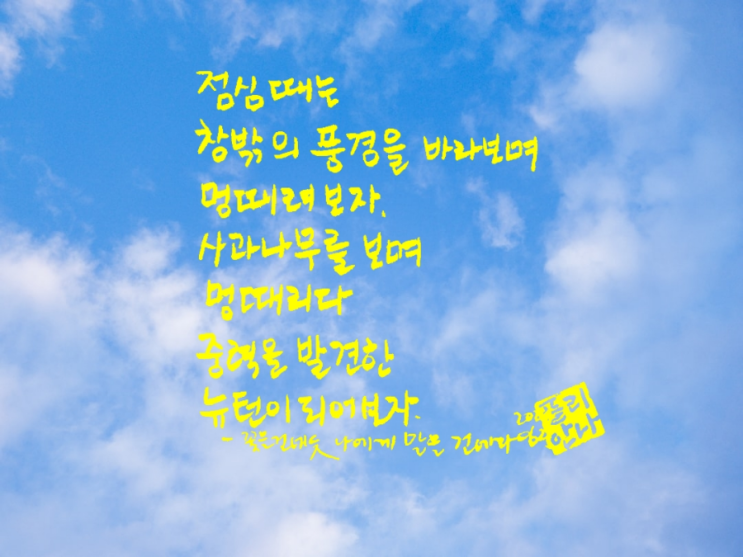 점심때는
창밖의 풍경을 바라보며
멍때려보자.
사과나무를 보며
멍때리다
중력을 발견한
뉴턴이 되어보자.
- 꽃을 건네듯 나에게 말을 건네라